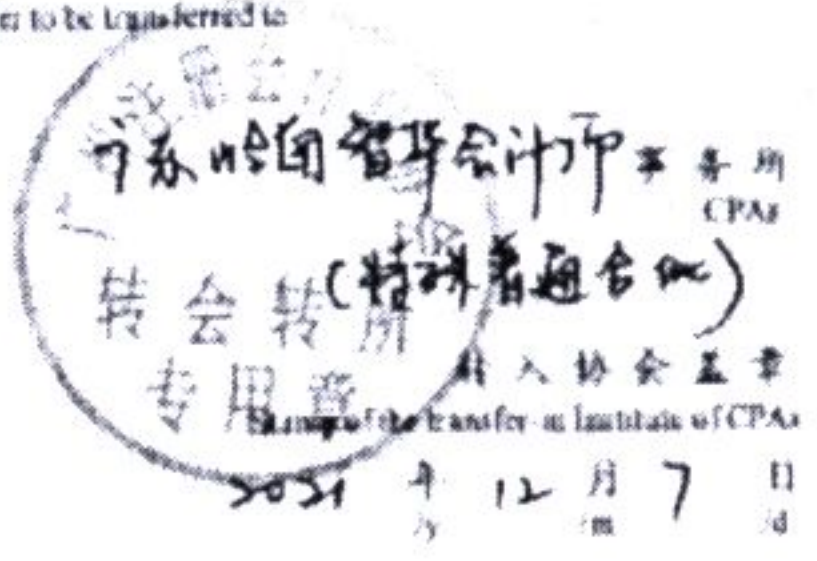 to be transferred to
广东岭南智华会计师事务所
CPAs
(特殊普通合伙)
转会转所
专用章
转入协会盖章
Stamp of the transfer-in Institute of CPAs
2021 年 12 月 7 日
/y /m /d